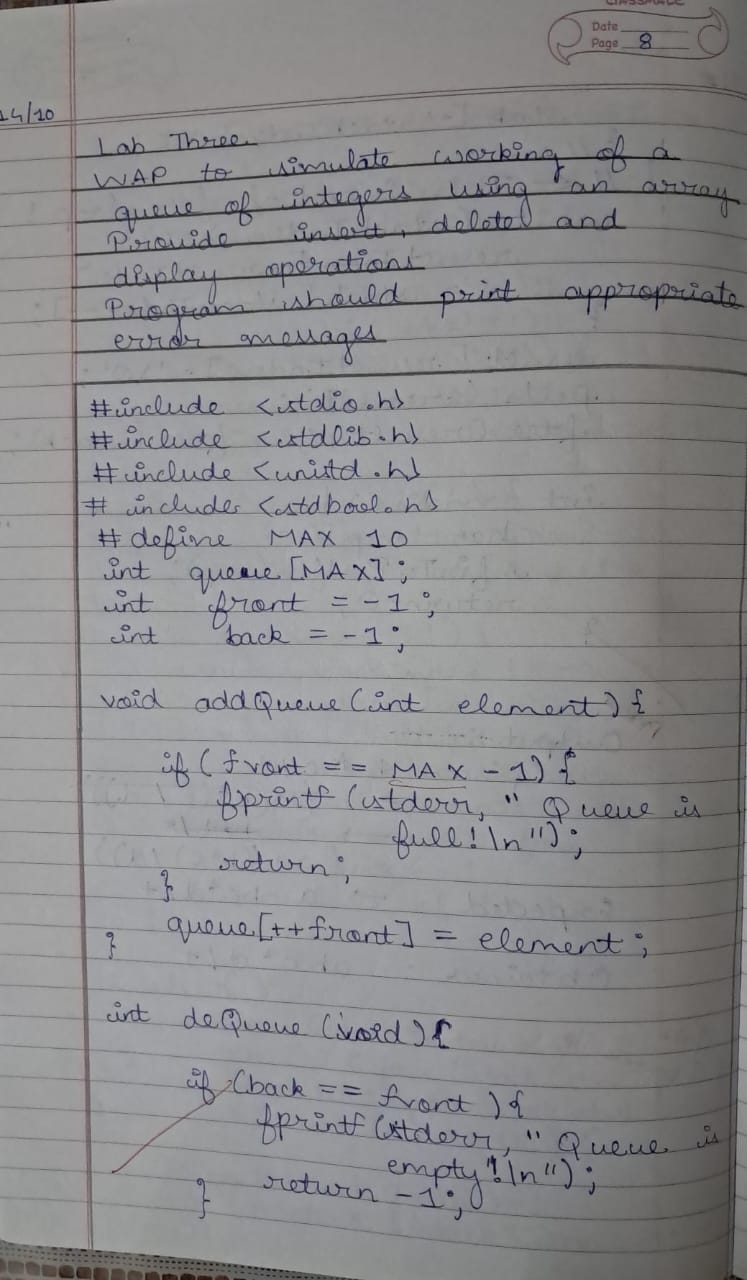 classmate
Date
Page 8
14/10
Lab Three.
WAP to simulate working of a
queue of integers using an array
Provide insert, delete and
display operations
Program should print appropriate
error messages
#include <stdio.h>
#include <stdlib.h>
#include <unistd.h>
# includes <stdbool.h>
# define MAX 10
int queue [MAX];
int front = -1;
int back = -1;
void addQueue (int element) {
if (front == MAX - 1) {
fprintf (stderr, " Queue is
full! \n ");
return;
}
queue[++front] = element;
}
int deQueue (void) {
if (back == front ) {
fprintf (stderr, " Queue is
empty! \n ");
return -1;
}